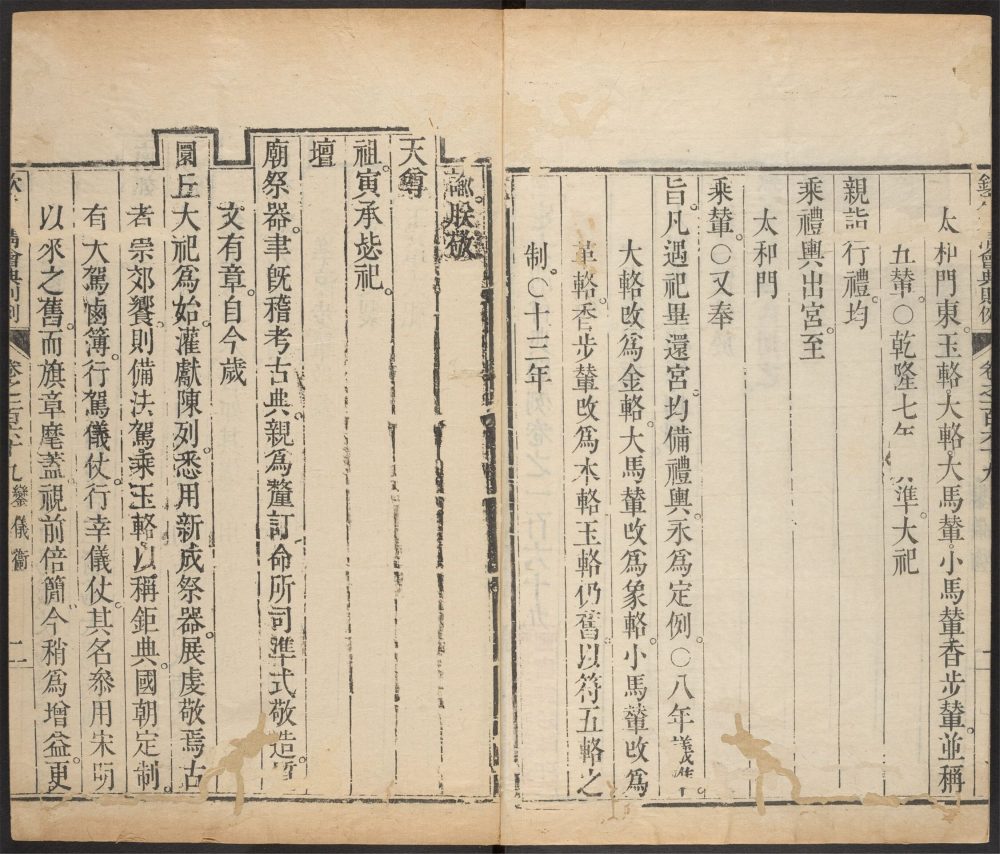 太和門東玉輅大輅大馬輦小馬輦香步輦並稱
五輦○乾隆七年 準大祀
親詣行禮均
乘禮輿出宮至
太和門
乘輦○又奉
旨凡遇祀畢還宮均備禮輿永為定例○八年議準
大輅改為金輅大馬輦改為象輅小馬輦改為
革輅香步輦改為木輅玉輅仍舊以符五輅之
制○十三年
諭朕敬
天尊
祖寅承毖祀
壇
廟祭器聿旣稽考古典親為釐訂命所司準式敬造
文有章自今歲
圜丘大祀為始灌獻陳列悉用新成祭器展虔敬焉古
者崇郊饗則備法駕乘玉輅以稱鉅典國朝定制
有大駕鹵簿行駕儀仗行幸儀仗其名參用宋明
以來之舊而旗章麾蓋視前倍簡今稍為增益更
會典則例 卷之一百六十九 鑾儀衞 二